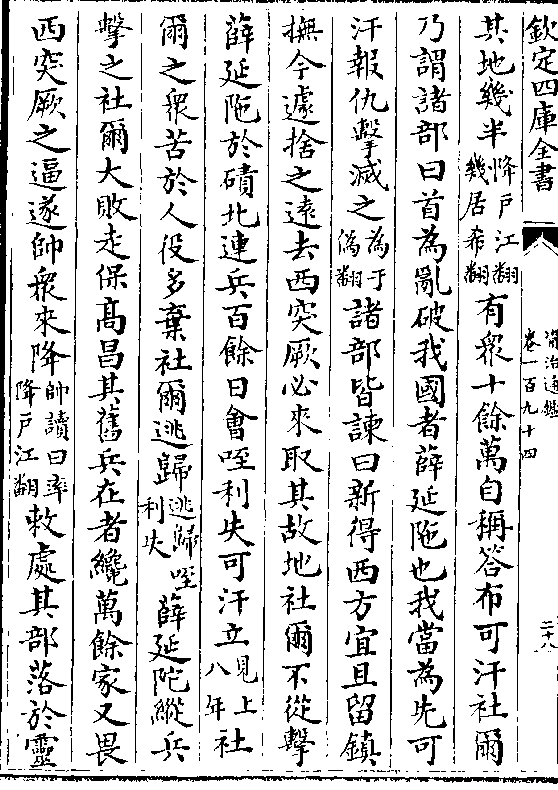 欽定四庫全書
資治通鑑
卷一百九十四
二十八
其地幾半降戶江翻幾居希翻有衆十餘萬自稱答布可汗社爾
乃謂諸部曰首為亂破我國者薛延陁也我當為先可
汗報仇擊滅之為于偽翻諸部皆諫曰新得西方宜且留鎮
撫今遽捨之逺去西突厥必來取其故地社爾不從擊
薛延陁於磧北連兵百餘日會咥利失可汗立見上八年社
爾之衆苦於人役多棄社爾逃歸逃歸咥利失薛延陀縱兵
擊之社爾大敗走保髙昌其舊兵在者纔萬餘家又畏
西突厥之逼遂帥衆來降帥讀曰率降戶江翻敕處其部落於靈